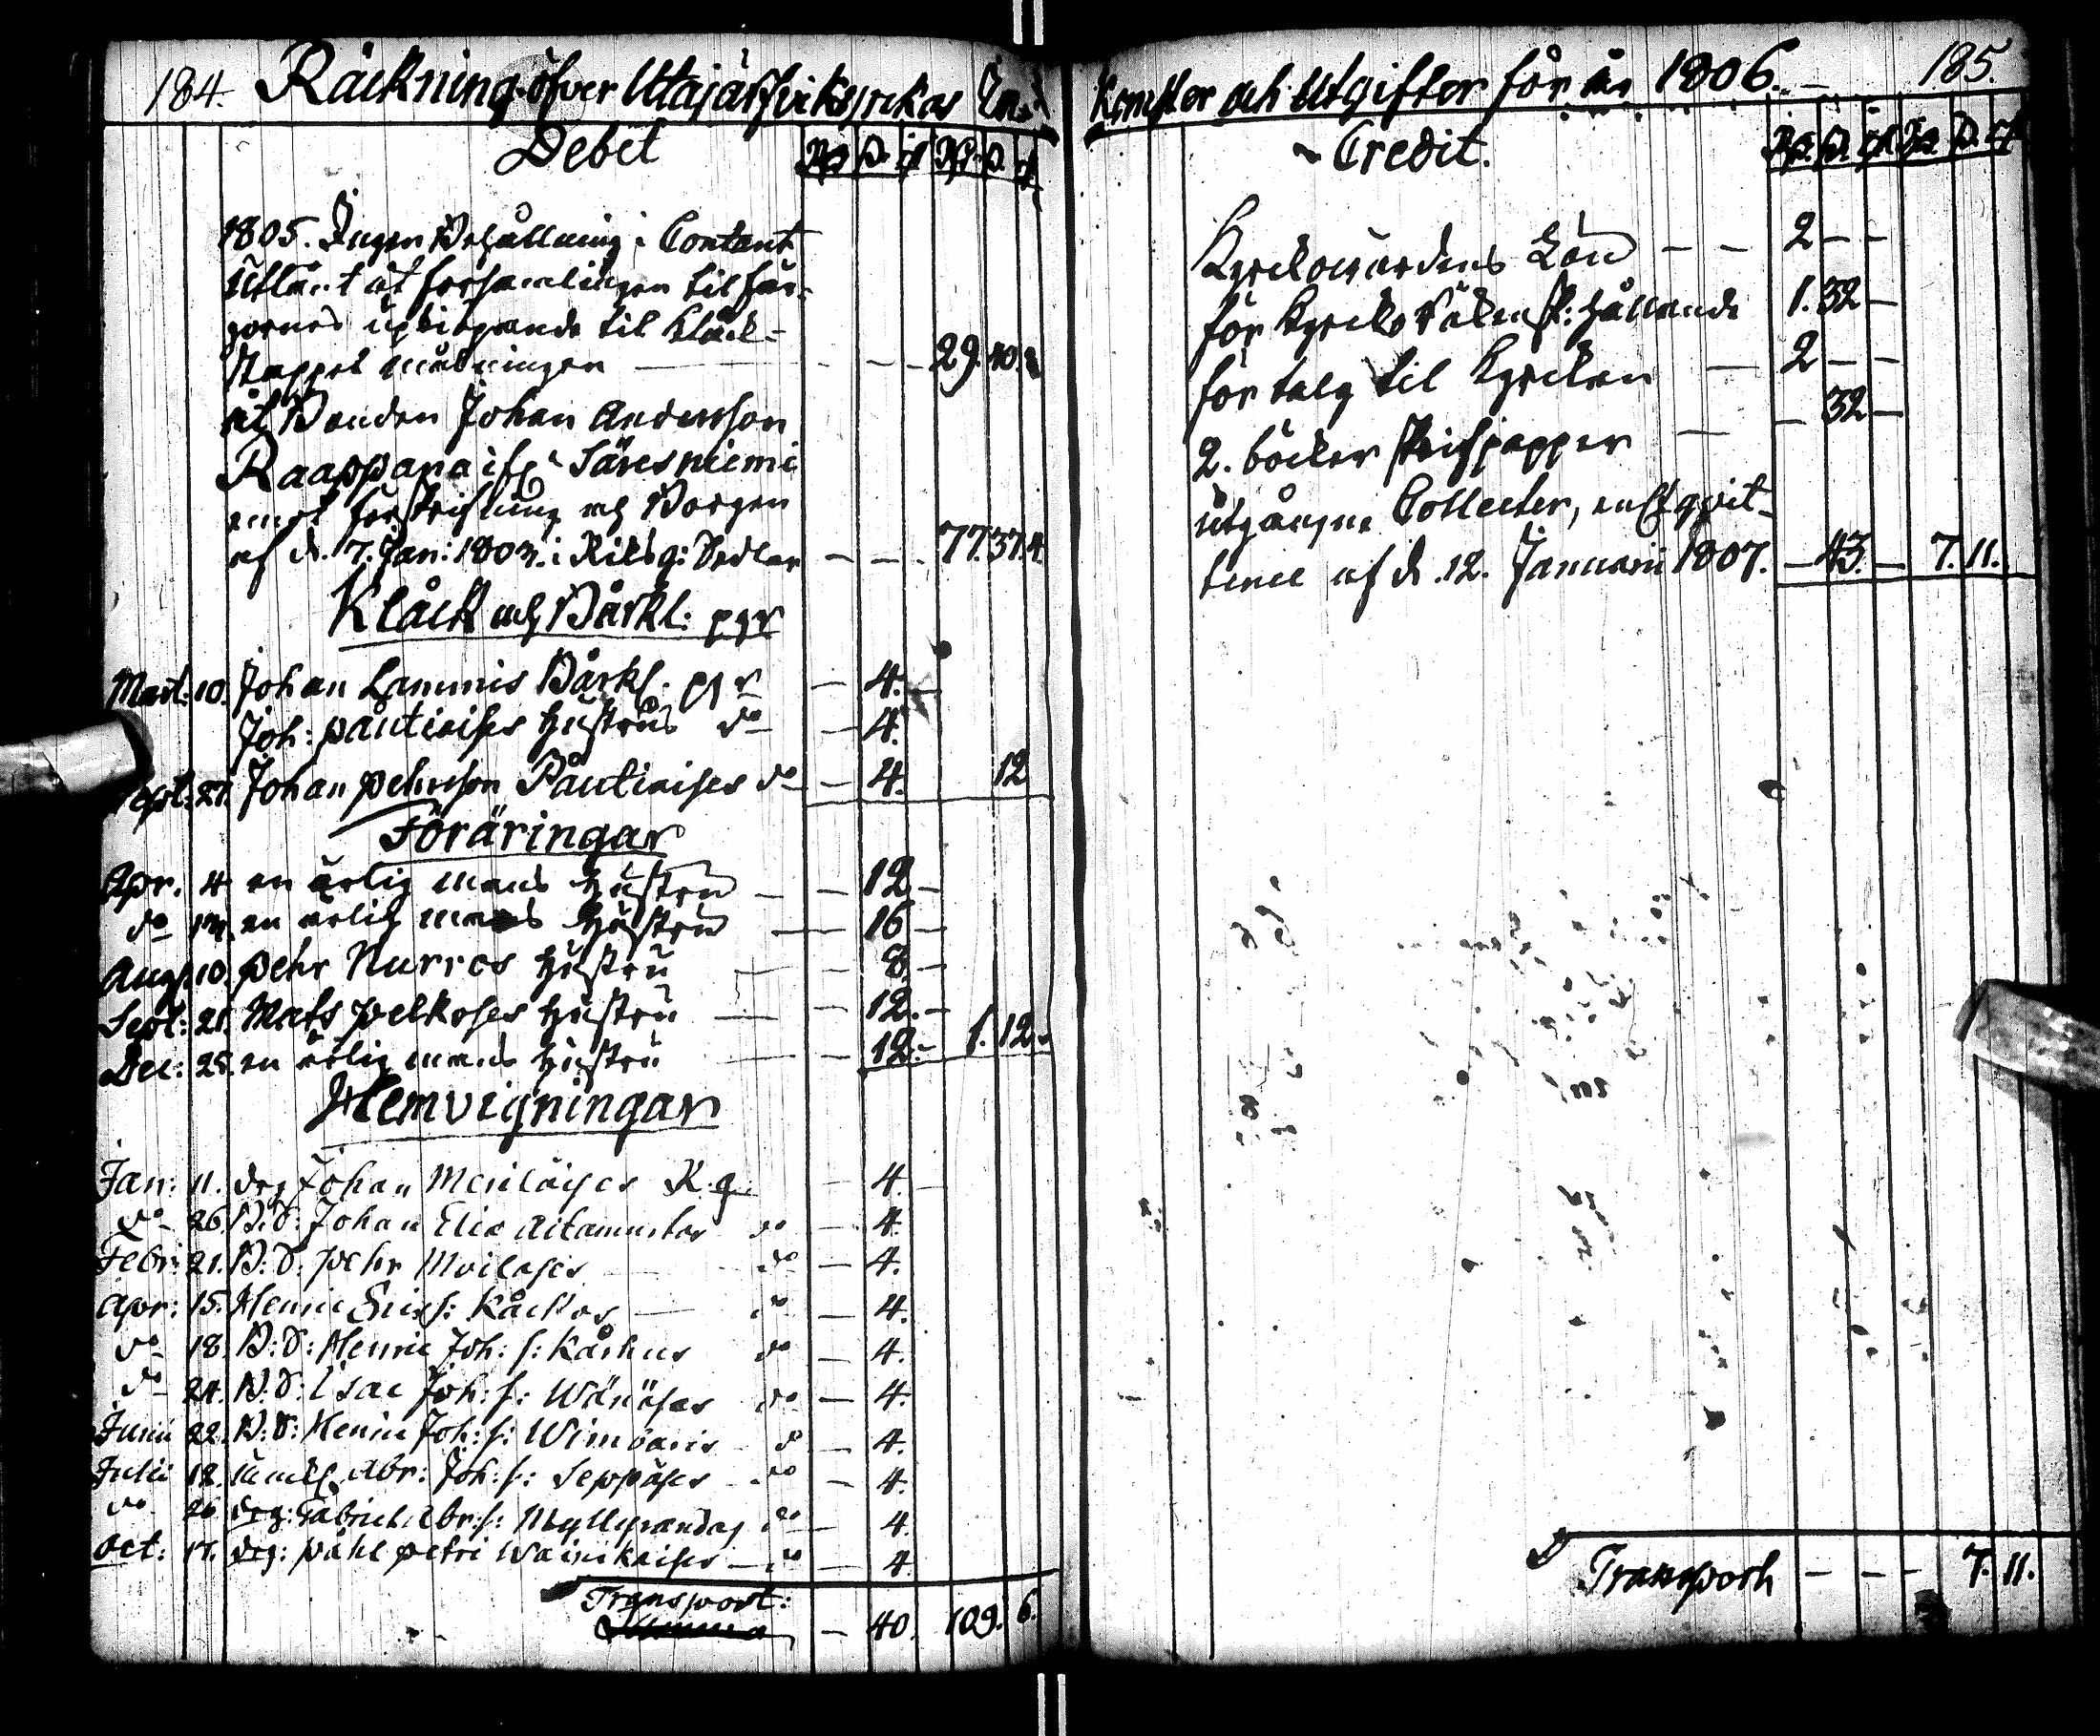 184. Räckning öfver Utajärfvi Kyrckas In-
Debet
Rd. s. rst. Rd. s. rst.
1805. Ingen Behållning i Contant
Utlånt åt församlingen til fär-
gornes upkiöpande til Klåck-
stappel målningen — — — 29. 40.
åt Bonden Johan Andersson
Raappana if: Säresniemi
emot förskrifning och Borgen
af d. 7. Jan: 1803. i Riksg: Sedlar — — 77. 37. 4.
Klåck och Bårkl: pgr
Mart: 10. Johan Lammis Bårkl. pgr — 4. —
Joh: Pautiaises Hustrus do — 4.
Sept: 27. Johan Pehrsson Påutiaises do — 4. 12
Föräringar
Apr. 4 en ärlig mans Hustru — — 12 —
do 13. en ärlig mans Hustru — 16 —
Aug. 10. Pehr Nurros Hustru — — 8. —
Sept: 21. Mats Pelkoses Hustru — — 12. —
Dec: 28. en ärlig mans Hustru — — 12. — 1. 12.
Hemvigningar
Jan: 11. drg Johan Meriläises K. g. — 4. —
do 26. B: S: Johan Elia Aitamurtos do — 4.
Febr: 21. B: S: Pehr Moilases — do — 4.
Apr: 15. Henric Ericss: Kåckos — do — 4.
do 18. B: S: Henric Joh: s: Kårhus do — 4.
do 24. B: S: Isac Joh: s: Wänäses do — 4.
Junii 22. B: S: Henric Joh: s: — do — 4.
Julii 18. Abr: Joh: s: Seppäses — do — 4.
do 26 drg: Gabriel Abr: s: do — 4.
Oct: 17. drg: Påhl Petri Wainikaises — do — 4
Transport:
Summa — 40. 109. 6.
Komster och Utgifter för år 1806. 185.
Credit.
Rd. s. rst. Rd. s. rst.
Kyrckovärdens Lön — — 2 — —
för Kyrcko Räkensk: hållande 1. 32 —
för talg til Kyrckan — 2 — —
2. böcker skrifpapper — — 32 —
utgångne Collecter, enl. qvit-
tence af d. 12. Januarii 1807. — 43. — 7. 11.
Transport — — — 7. 11.